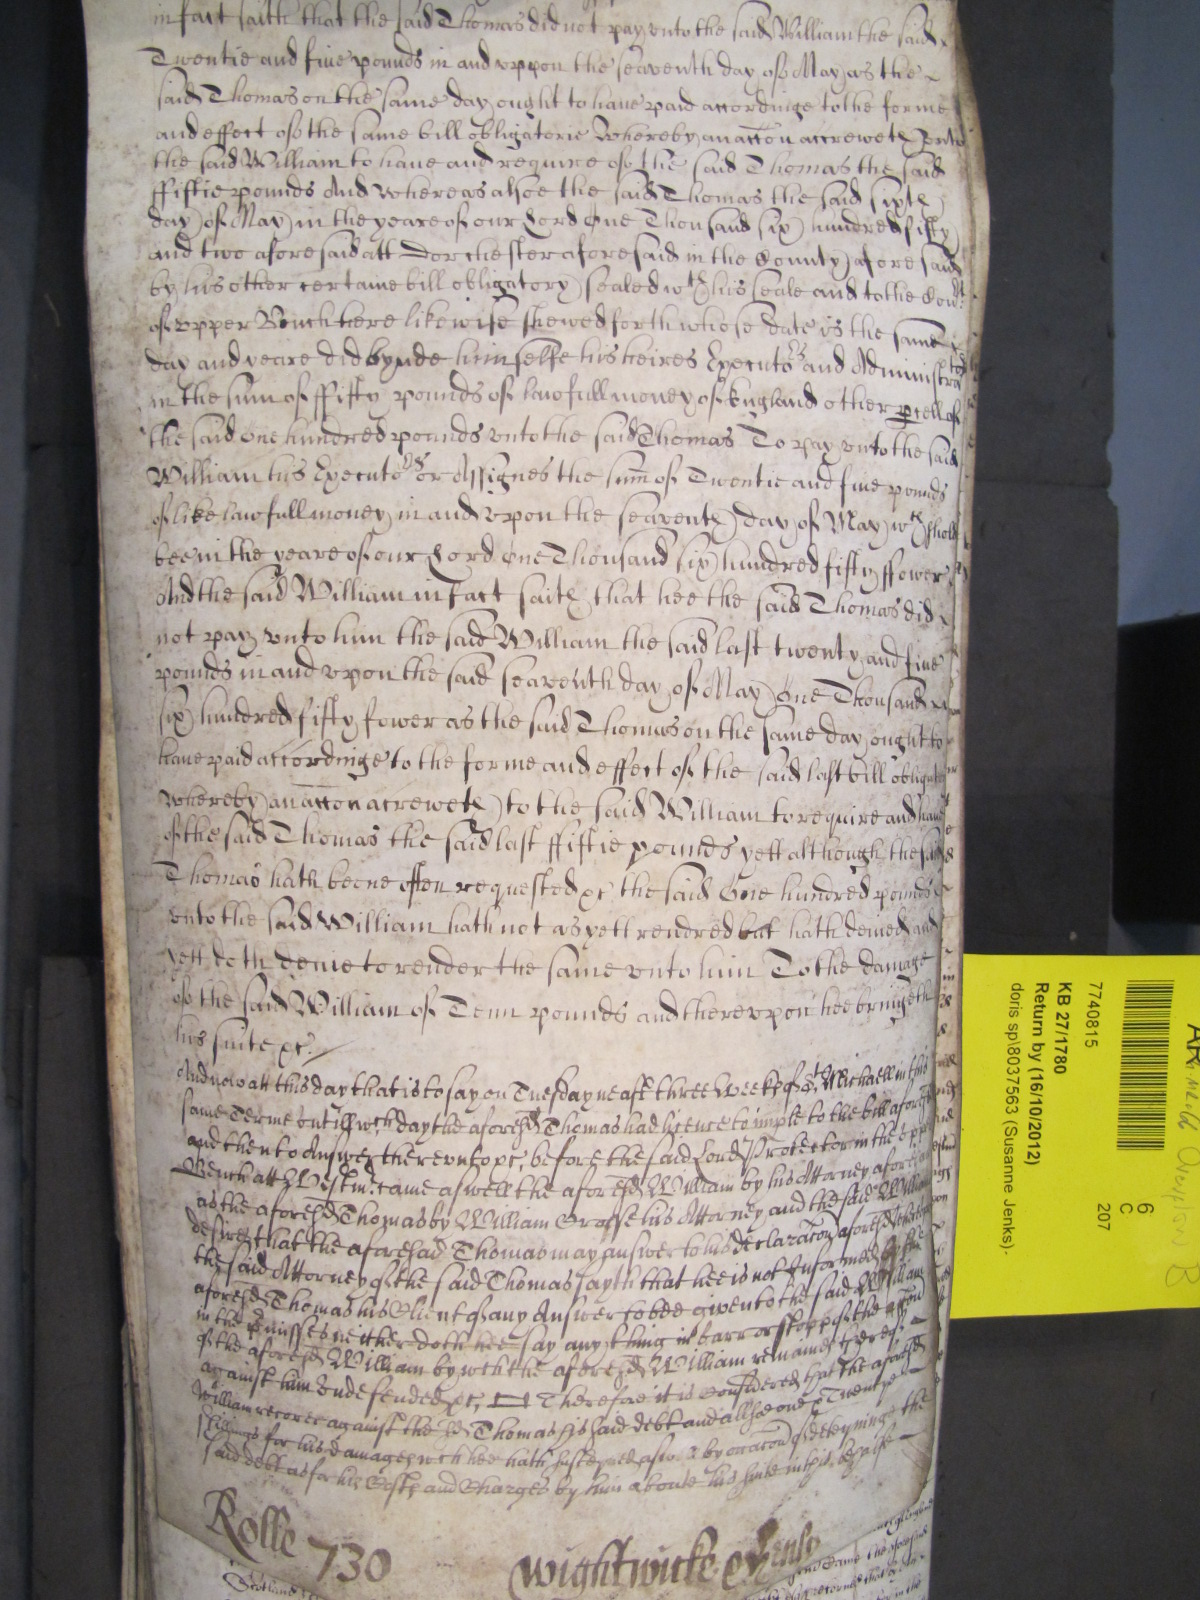 in fact saith that the said Thomas did not pay unto the said William the said
Twentie and five pounds in and uppon the seaventh day of May as the
said Thomas on the same day ought to have paid accordinge to the forme
and effect of the same bill obligatorie Whereby an accon accreweth unto
the said William to have and require of the said Thomas the said
ffiftie pounds And whereas alsoe the said Thomas the said sixth
day of May in the yeare of our Lord One Thousand six hundred fifty
and two aforesaid att Dorchester aforesaid in the County aforesaid
by his other certaine bill obligatory sealed wth his seale and to the Court
of upper Bench here likewise shewed forth whose date is the same
day and yeare did bynde himselfe his heires Executors and Administrators
in the sum of ffifty pounds of lawfull money of England other pcell of
the said one hundred pounds unto the said Thomas To pay unto the said
William his Executors or Assignes the sum of Twentie and five pounds
of like lawfull money in and upon the seaventh day of May wch should
bee in the yeare of our Lord One Thousand six hundred fifty ffower
And the said William in fact saith that hee the said Thomas did
not pay unto him the said William the said last twenty and five
pounds in and upon the said seaventh day of May One Thousand
six hundred fifty fower as the said Thomas on the same day ought to
have paid accordinge to the forme and effect of the said last bill obligatory
whereby an accon accreweth to the said William to require and have
of the said Thomas the said last ffiftie pounds yett although the said
Thomas hath beene often requested &c the said One hundred pounds
unto the said William hath not as yett rendred but hath denied and
yett doth denie to render the same unto him To the damage
of the said William of Tenn pounds and thereupon hee bringeth
his suite &c.
And now att this day that is to say on Tuesday next aft three Weekes of St Michaell in this
same Terme untill wch day the aforesd Thomas had licence to imple to the bill aforesd
and then to Answer thereunto &c, before the said Lord Protector in the upper
Bench att Westmr came aswell the aforesd William by his Attorney aforesd
as the aforesd Thomas by William Grosse his Attorney and the said William
desires that the aforesaid Thomas may answer to his declaracon aforesd
the said Attorney of the said Thomas sayth that hee is not Informed by the
aforesd Thomas his Client of any Answer to bee given to the said William
in the pmisses neither doth hee say any thing in barr or stopp of the accon
of the aforesd William by wch the aforesd William remaines thereof
against him Undefended &c, Therefore it is Considered that the aforesd
William recover against the sd Thomas his said debt and allsoe one & Twentye
shillings for his damages wch hee hath susteyned aswell by occacon of deteyninge the
said debt as for his Costs and Charges by him aboute his suite in this behalfe
Rolle 730
Wightwicke
Scotland
7740815
KB 27/1780
Return by (16/10/2012)
doris sp\8037563 (Susanne Jenks).
6
C
207